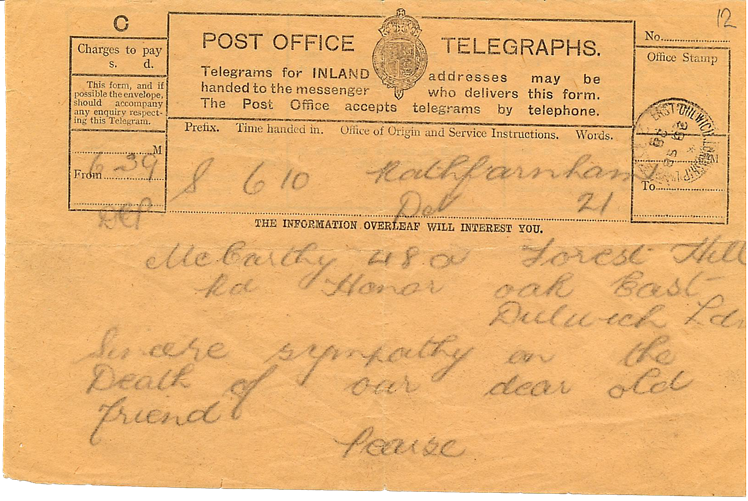 12
C
POST OFFICE TELEGRAPHS.
No.
Charges to pay
s. d.
Office Stamp
Telegrams for INLAND addresses may be
handed to the messenger who delivers this form.
The Post Office accepts telegrams by telephone.
This form, and if
possible the envelope,
should accompany
any enquiry respect-
ing this Telegram.
Prefix. Time handed in. Office of Origin and Service Instructions. Words.
EAST DULWICH
M
6-39
From
S 6 10 Rathfarnham
Del 21
M
To
THE INFORMATION OVERLEAF WILL INTEREST YOU.
McCarthy 48a Forest Hill
Rd Honor oak East
Dulwich Ldn
Sincere sympathy on the
Death of our dear old
friend
Pearse